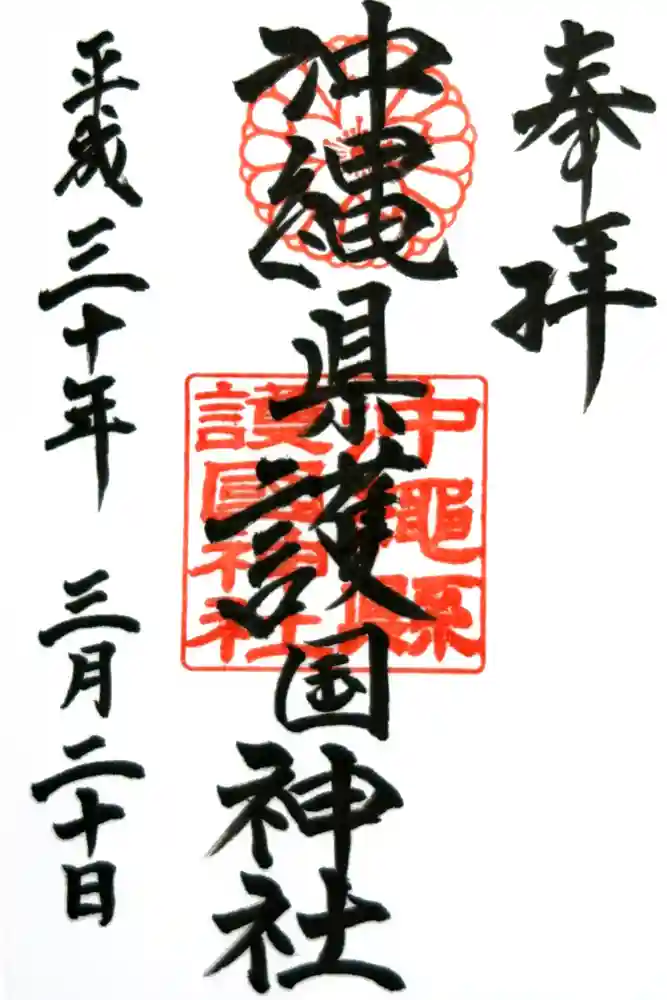 奉拝
沖縄県護国神社
沖繩縣
護國神社
平成三十年 三月二十日